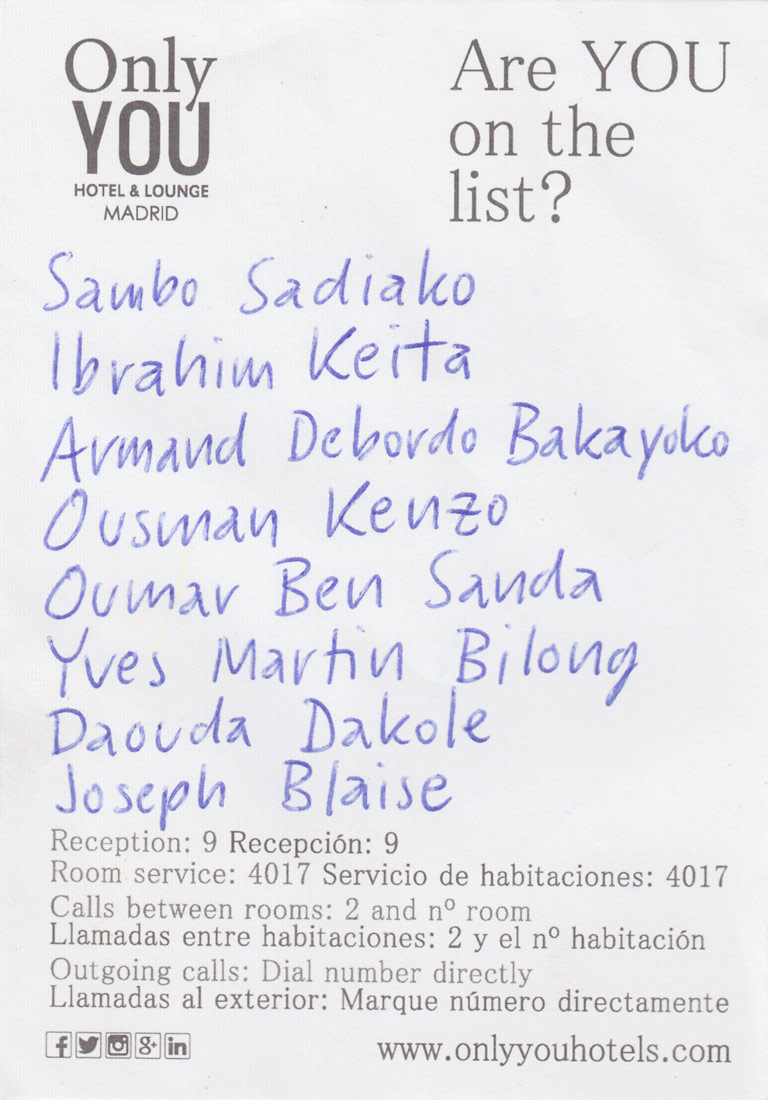 Only
YOU
HOTEL & LOUNGE
MADRID
Are YOU
on the
list?
Sambo Sadiako
Ibrahim Keita
Armand Debordo Bakayoko
Ousman Kenzo
Oumar Ben Sanda
Yves Martin Bilong
Daouda Dakole
Joseph Blaise
Reception: 9 Recepción: 9
Room service: 4017 Servicio de habitaciones: 4017
Calls between rooms: 2 and nº room
Llamadas entre habitaciones: 2 y el nº habitación
Outgoing calls: Dial number directly
Llamadas al exterior: Marque número directamente
www.onlyyouhotels.com